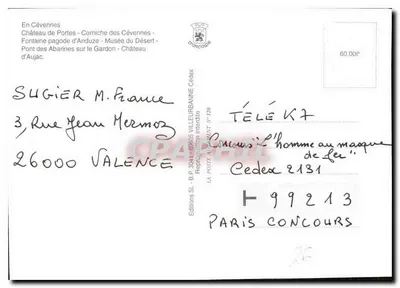 En Cévennes
Château de Portes - Corniche des Cévennes -
Fontaine pagode d'Anduze - Musée du Désert -
Pont des Abarines sur le Gardon - Château
d'Aujac.
60.00F
SUGIER M. France
3, Rue Jean Mermoz
26000 VALENCE
Editions SL - B.P. 69605 VILLEURBANNE Cedex
Reproductions interdite
LA POSTE N° 728
TÉLÉ K7
Concours "L'homme au masque
de fer"
Cedex 2131
99213
PARIS CONCOURS